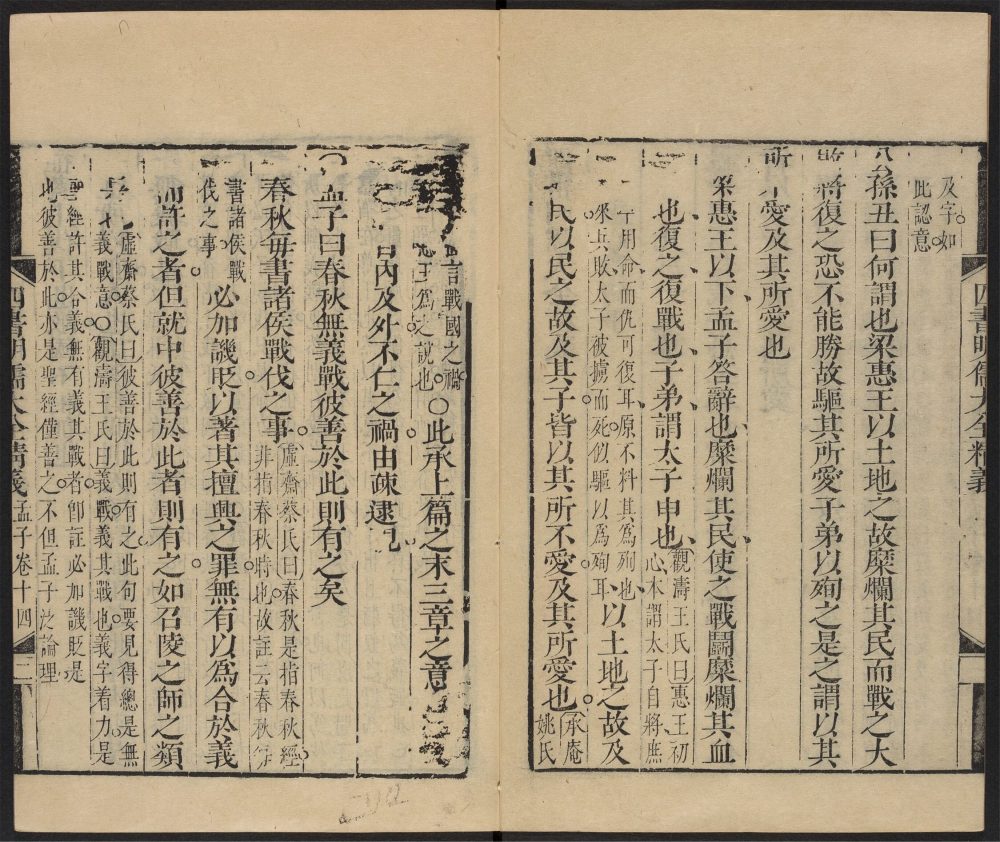 及字如
此認意
孫丑曰何謂也梁惠王以土地之故糜爛其民而戰之大
將復之恐不能勝故驅其所愛子弟以殉之是之謂以其
所 愛及其所愛也
梁惠王以下孟子答辭也糜爛其民使之戰鬬糜爛其血
也復之復戰也子弟謂太子申也
觀濤王氏曰惠王初
心本謂太子自將庶
用命而仇可復耳原不料其爲殉也
來兵敗太子被擄而死似驅以爲殉耳
以土地之故及
民以民之故及其子皆以其所不愛及其所愛也
承庵
姚氏
四書明儒大全精義
言戰國之禍
惠王爲之說也
○此承上篇之末三章之意
內及外不仁之禍由疎逮
孟子曰春秋無義戰彼善於此則有之矣
春秋每書諸侯戰伐之事
虛齋蔡氏曰春秋是指春秋經
非指春秋時也故註云春秋
書諸侯戰
伐之事
必加譏貶以著其擅興之罪無有以爲合於義
而許之者但就中彼善於此者則有之如召陵之師之類
虛齋蔡氏曰彼善於此則有之此句要見得總是無
義戰意○觀濤王氏曰義戰義其戰也義字着力是
聖經許其合義無有義其戰者卽註必加譏貶是
也彼善於此亦是聖經僅善之不但孟子泛論理
四書明儒大全精義 孟子卷十四 二